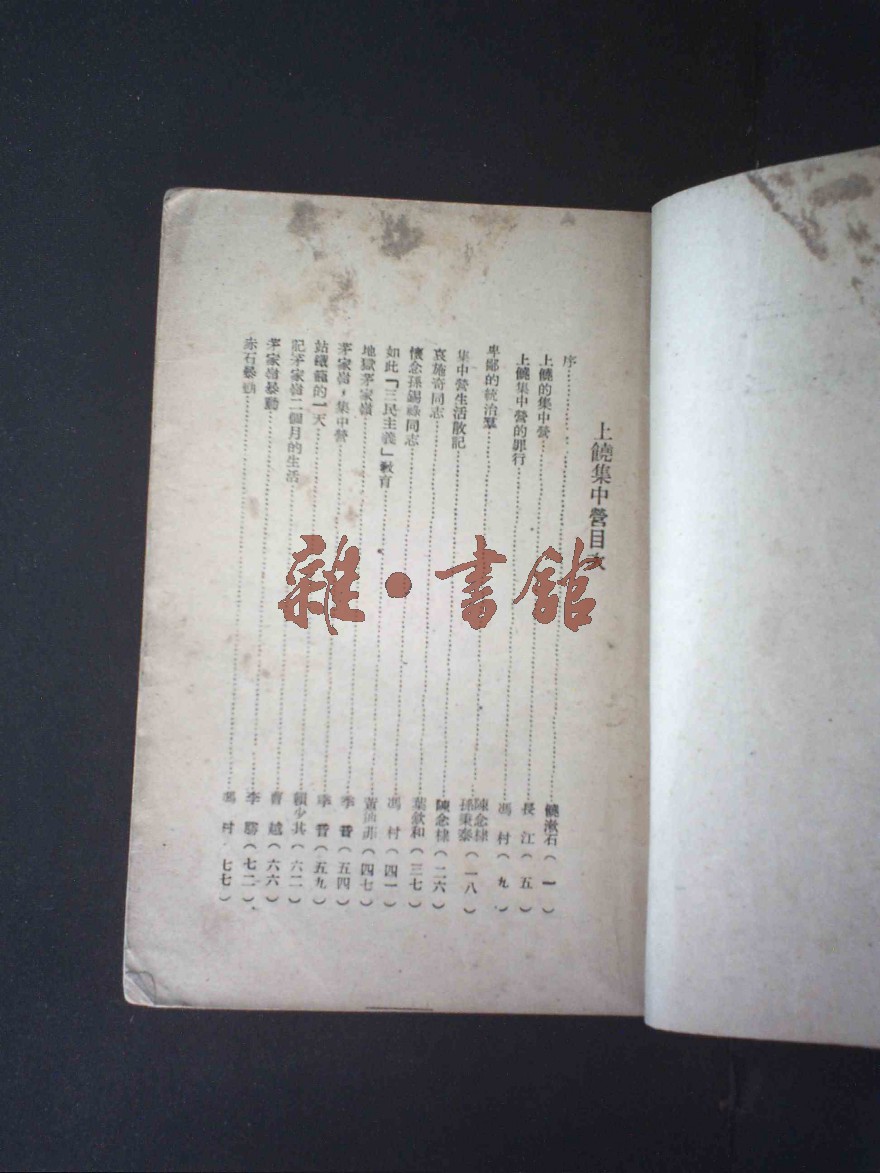 上饒集中營目次
序……饒漱石(一)
上饒的集中營……長江(五)
上饒集中營的罪行……馮村(九)
卑鄙的統治羣……陳念棣 孫秉泰(一八)
集中營生活散記……陳念棣(二六)
哀施奇同志……葉欽和(三七)
懷念孫錫祿同志……馮村(四一)
如此「三民主義」教育……黃迪菲(四七)
地獄茅家嶺……季音(五四)
茅家嶺,集中營……季音(五九)
站鐵籠的一天……賴少其(六二)
記茅家嶺二個月的生活……曹越(六六)
茅家嶺暴動……李勝(七二)
赤石暴動……馮村(七七)
雜·書館